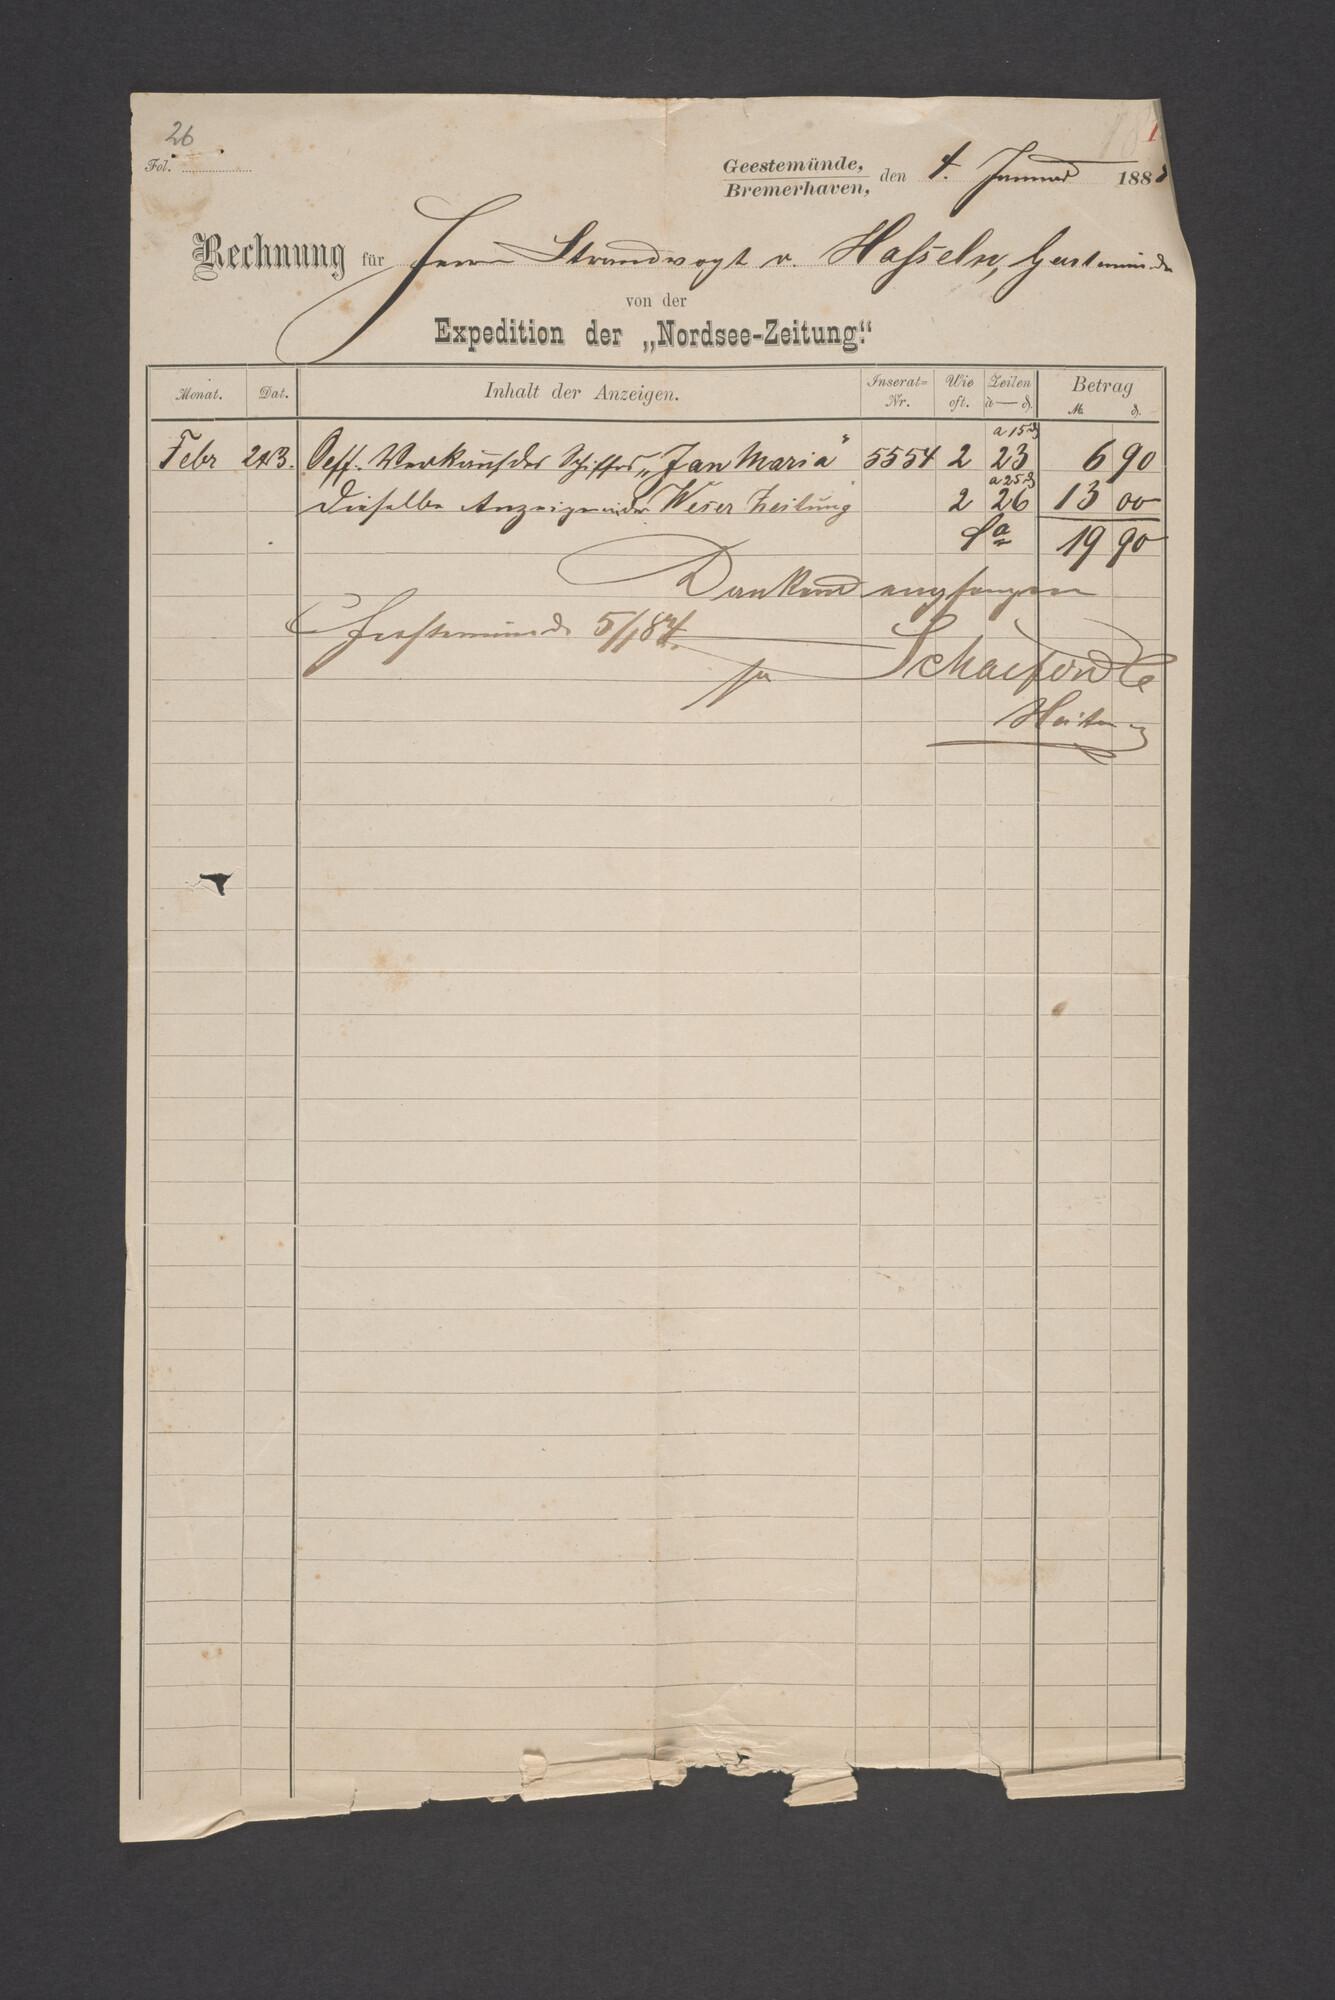 26
Fol.
Geestemünde, Bremerhaven, den 4. Januar 188
Rechnung für Herrn Strandvogt v. Hasseln, Geestemünde
von der
Expedition der „Nordsee-Zeitung.“
Monat. Dat. Inhalt der Anzeigen. Inserat-Nr. Wie oft. Zeilen à — ₰. Betrag M. ₰.
a 15 ₰
Febr 2&3. Oeff. Verkauf des Schiffes „Jan Maria“ 5554 2 23 6 90
a 25 ₰
Dieselbe Anzeige in der Weser Zeitung 2 26 13 00
Sa 19 90
Dankend empfangen
Geestemünde 5/1 84.